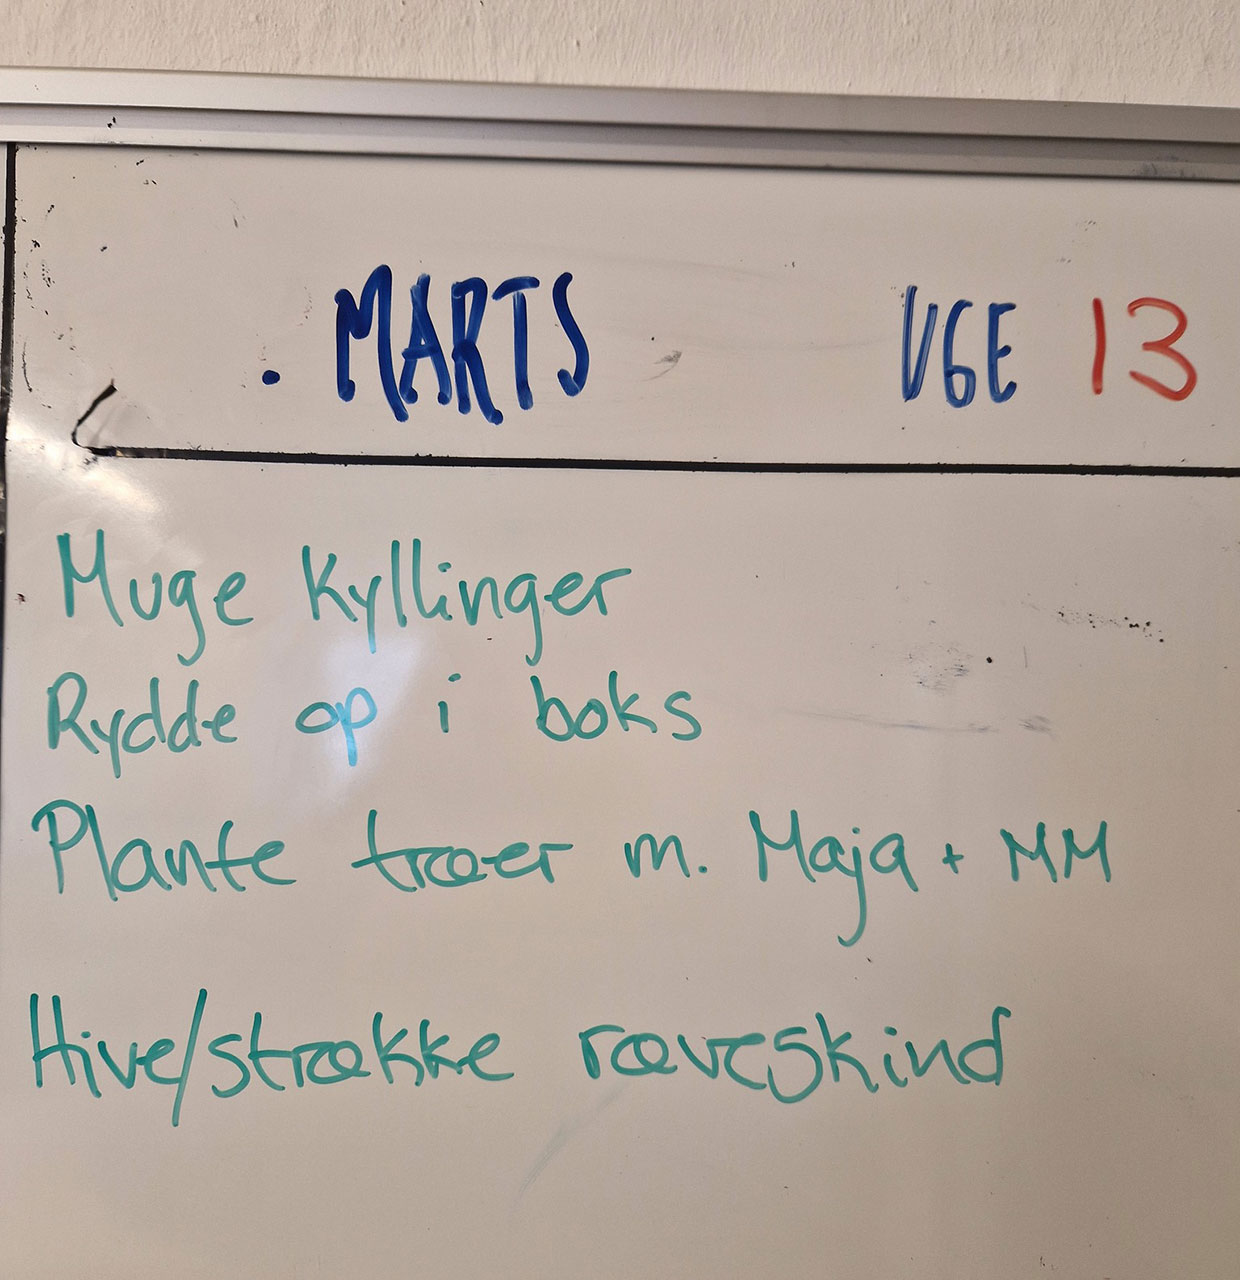 . MARTS UGE 13
Muge Kyllinger
Rydde op i boks
Plante træer m. Maja + MM
Hive/strække ræveskind